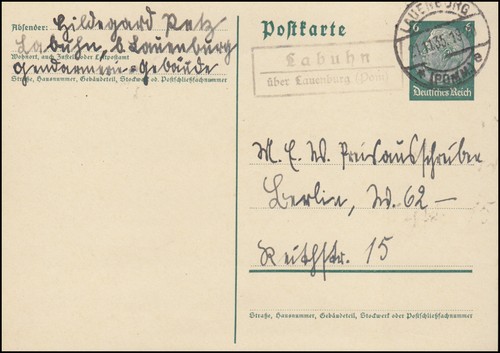 Absender: Hildegard Petz
Labuhn, b. Lauenburg
Wohnort, auch Zustell- oder Leitpostamt
Gendarmerie-Gebäude
Straße, Hausnummer, Gebäudeteil, Stockwerk od. Postschließfachnummer
Postkarte
LAUENBURG
35
(POMM)
e
6 6
Deutsches Reich
Labuhn
über Lauenburg (Pom)
M. E. W. Preisausschreiben
Berlin, W. 62 —
Keithstr. 15
Straße, Hausnummer, Gebäudeteil, Stockwerk oder Postschließfachnummer